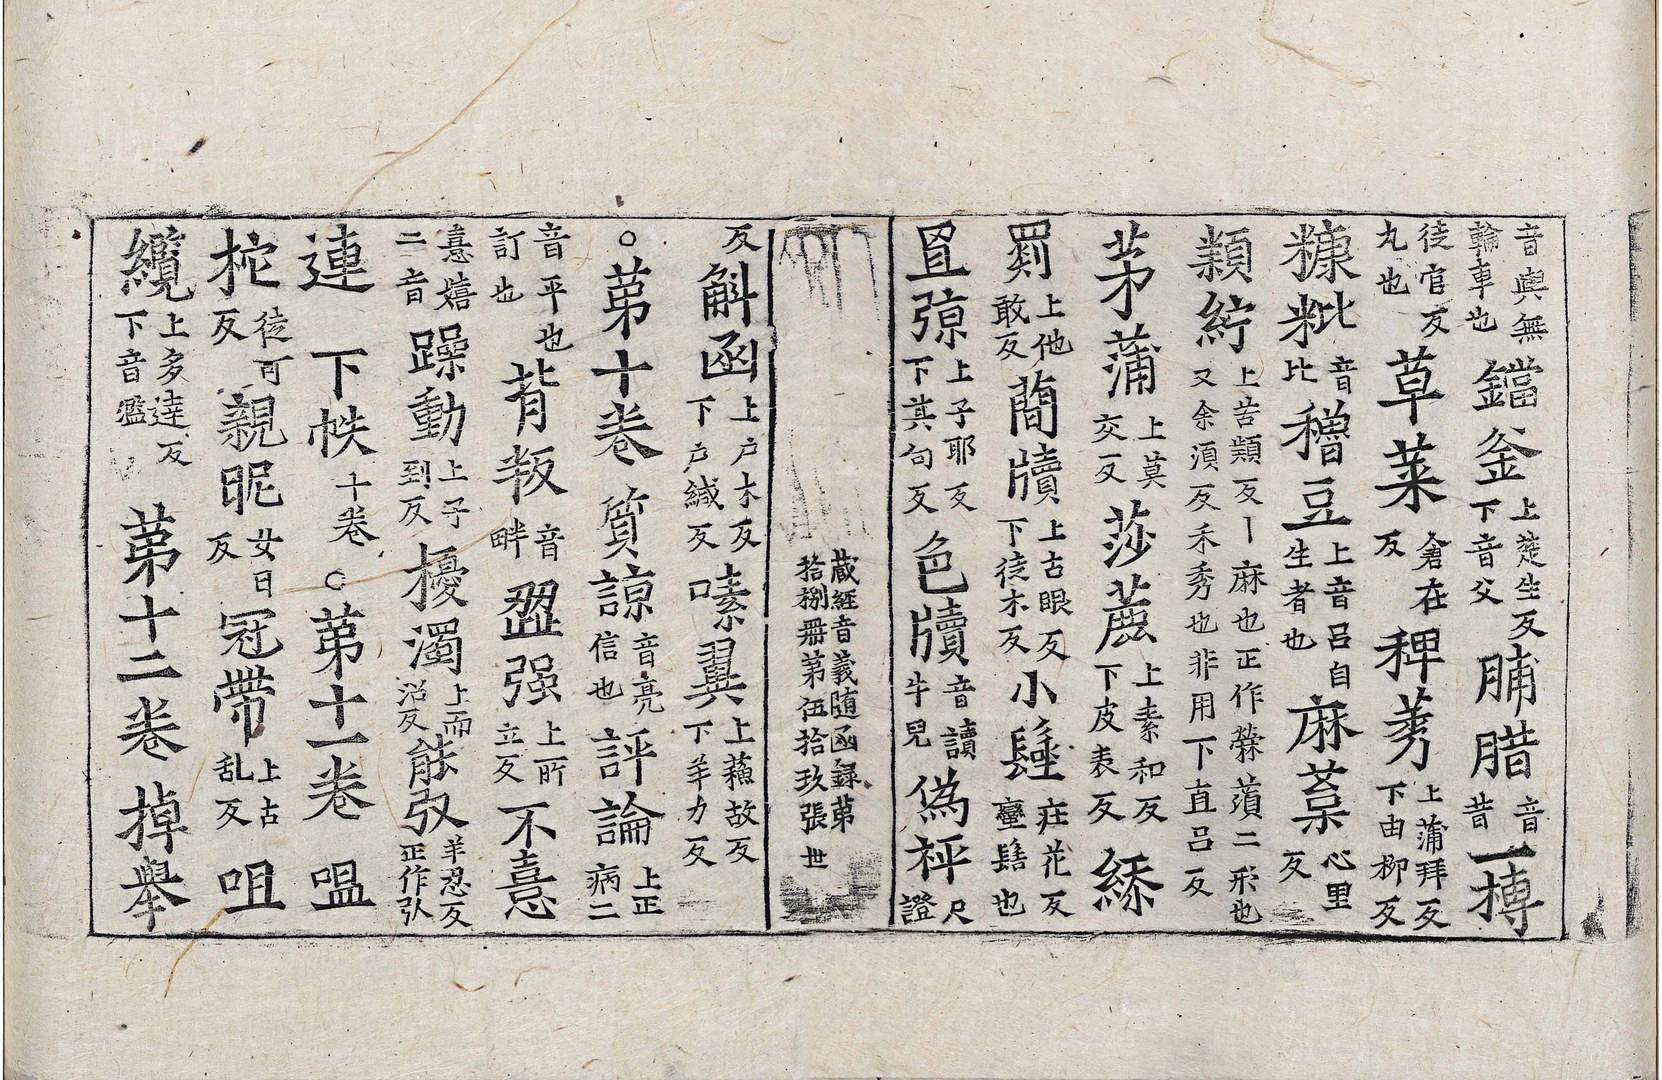 音與無輪車也鐺釜上楚生反下音父脯腊音昔一摶
徒官反丸也草菜倉在反稗莠上蒲拜反下由柳反
糠粃音比穭豆上音吕自生者也麻葈心里反
顈紵上苦顈反丨麻也正作檾䔛二形也又余湏反禾秀也非用下直吕反
茅蒲上莫交反莎藨上素和反下皮表反綵
罽上他敢反蕳牘上古眼反下徒木反小髽庄花反壅髻也
罝弶上子耶反下其句反色牘音讀牛皃偽秤尺證
藏經音義随函録第拾捌冊第伍拾玖張世
反斛函上户木反下户緘反嗉翼上蘓故反下羊力反
○第十卷質諒音亮信也評論上正病二
音平也訂也背叛音畔澀强上所立反不憙
憙嬉二音躁動上子到反擾濁上而沼反能㢧羊忍反正作弘
連下帙十卷○第十一卷嗢
柁徒可反親昵女日反冠帶上古乱反咀
纜上多達反下音濫第十二卷掉舉